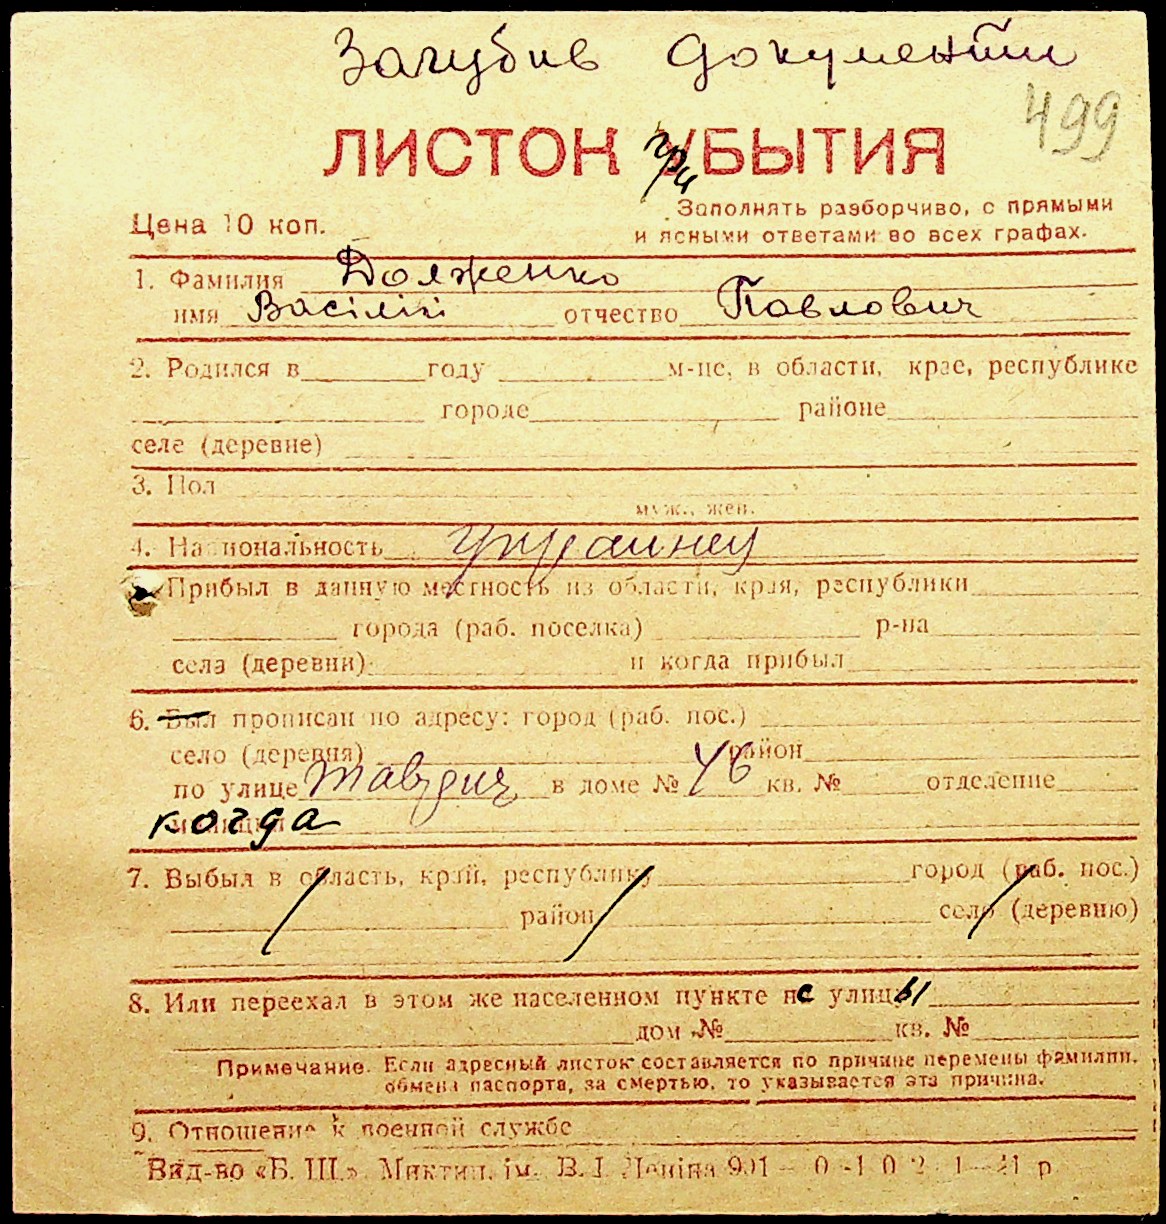 Загубив документи
499
ЛИСТОК УБЫТИЯ
при
Заполнять разборчиво, с прямыми
Цена 10 коп.
и ясными ответами во всех графах.
1. Фамилия Долженко
имя Васілій отчество Павлович
2. Родился в году м-це, в области, крае, республике
городе районе
селе (деревне)
3. Пол
муж., жен.
4. Национальность Украинец
Прибыл в данную местность из области, края, республики
города (раб. поселка) р-на
села (деревни) и когда прибыл
6. Был прописан по адресу: город (раб. пос.)
село (деревня) район
по улице в доме № 46 кв. № отделение
когда
7. Выбыл в область, край, республику город (раб. пос.)
район село (деревню)
8. Или переехал в этом же населенном пункте с улицы
дом № кв. №
Примечание. Если адресный листок составляется по причине перемены фамилии,
обмена паспорта, за смертью, то указывается эта причина.
9. Отношение к военной службе
Вид-во «Б. Ш.». Миктип. ім. В. І. Леніна